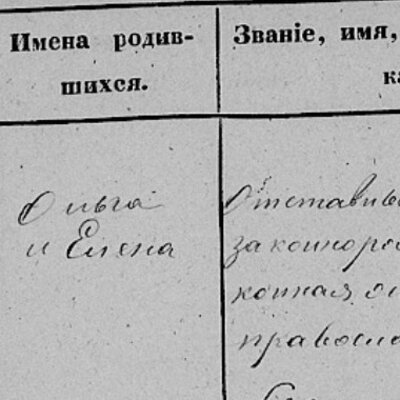 Имена родив-
шихся.
Званіе, имя,
ка
Ольга
и Елена
Отставны
законоро
конная
правосла